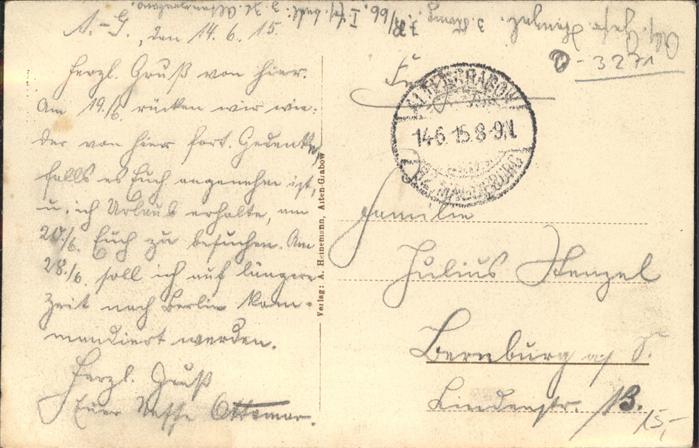 A.-G., den 14.6.15.
Herzl. Gruß von hier.
Am 19./6. rücken wir wie-
der von hier fort. Gedenke
falls es Euch angenehm ist
u. ich Urlaub erhalte, am
20./6. Euch zu besuchen. Am
28./6. soll ich auf längere
Zeit nach Berlin kom-
mandiert werden.
Herzl. Gruß
Euer Neffe Ottomar.
Verlag: A. Heinemann, Alten-Grabow
Abs. Gefr. Stenzel
O-3271
ALTENGRABOW
14.6.15.8-9N.
(BZ. MAGDEBURG)
Familie
Julius Stenzel
Bernburg a/S.
Lindenstr. 13.
15,-